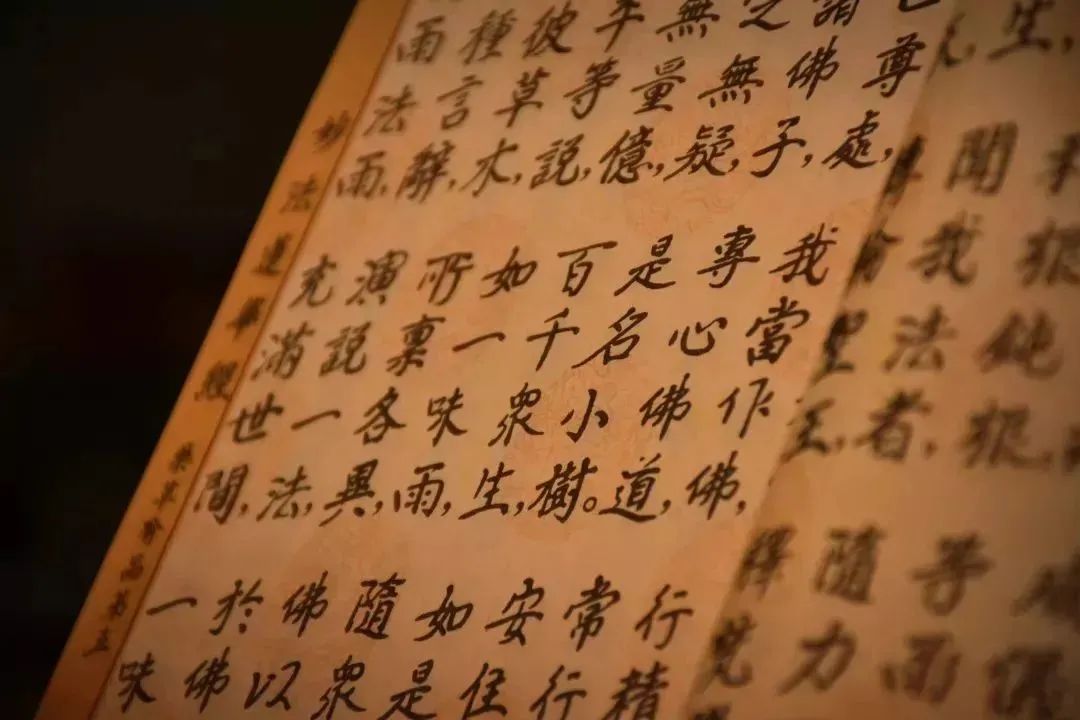 利根鈍根,等雨
生,聞我法者,隨力
聖王,釋梵
尊處,我當作佛,行精
諸佛子,專心佛道,常行
無疑,是名小樹。安住
無量億百千眾生,如是
等說,如一味雨,隨眾
彼草木,所稟各異,佛以
種言辭,演說一法,於佛
雨法雨,充滿世間,一味
妙法蓮華經 藥草喻品第五